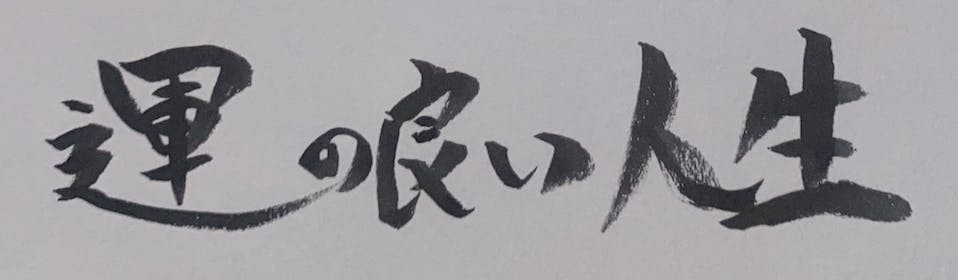 運の良い人生